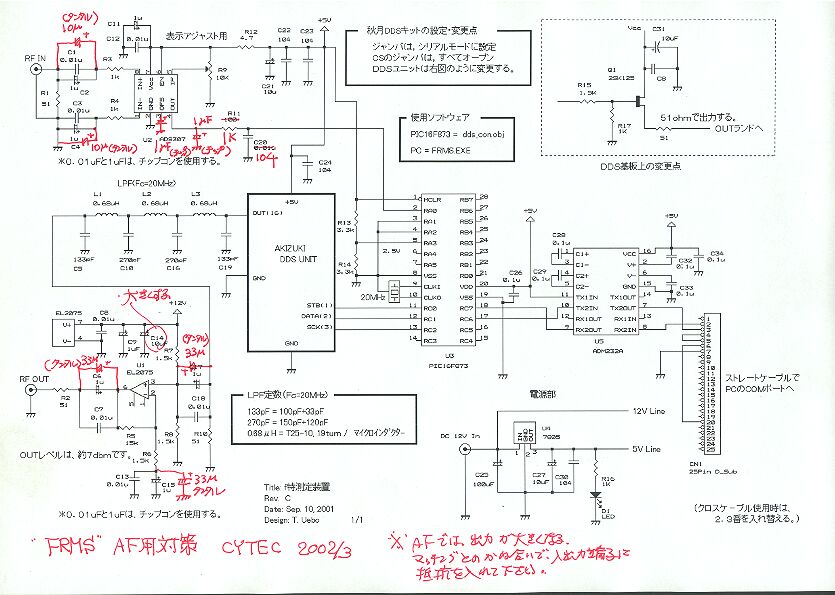 (タンタル)
10μ
RF IN
C1
0.01u
1u
C2
R1
51
R3
1k
C3
0.01u
R4
1k
C4
1u
10μ(タンタル)
C11
1u
C12
0.01u
表示アジャスト用
R9
10K
U2
AD8307
1μF
(チップ)
1μF
(チップ)
R11
100
1K
C20
0.01u
104
R12
4.7
C21
10u
C22
104
C23
104
+5V
C24
104
*0.01uFと1uFは、チップコンを使用する。
秋月DDSキットの設定・変更点
ジャンパは、シリアルモードに設定
CSのジャンパは、すべてオープン
DDSユニットは右図のように変更する。
使用ソフトウェア
PIC16F873 = dds_con.obj
PC = FRMS.EXE
Vcc
C31
10uF
C8
Q1
2SK125
R15
1.5K
R17
1K
51ohmで出力する。
51
OUTランドへ
DDS基板上の変更点
LPF(Fc=20MHz)
L1
0.68uH
L2
0.68uH
L3
0.68uH
133pF
C5
270pF
C10
270pF
C16
133pF
C19
+5V
OUT(16)
AKIZUKI
DDS UNIT
GND
STB(1)
DATA(2)
SCK(3)
GND
R13
3.3K
R14
3.3K
2.5V
20MHz
1 MCLR RB7 28
2 RA0 RB6 27
3 RA1 RB5 26
4 RA2 RB4 25
5 RA3 RB3 24
6 RA4 RB2 23
7 RA5 RB1 22
8 VSS RD0 21
9 CLKI VDD 20
10 CLKO VSS 19
11 RC0 RC7 18
12 RC1 RC6 17
13 RC2 RC5 16
14 RC3 RC4 15
U3
PIC16F873
C26
0.1u
+5V
C28
0.1u
C29
0.1u
C1+
C1-
C2+
C2-
TX1IN
TX2IN
RX1OUT
RX2OUT
VCC
V+
V-
GND
TX1OUT
TX2OUT
RX1IN
RX2IN
U5
ADM232A
+5V
C32
0.1u
C34
0.1u
C33
0.1u
大きくする
+12V
EL2075
V+
V-
C8
0.01u
C9
1uF
C14
10uF
R7
1.5K
(タンタル)
33μ
(タンタル)33μ
C6
1u
U1
EL2075
RF OUT
R2
51
C7
0.01u
C18
0.01u
R5
15K
R8
1.5K
R10
51
R6
1.5K
OUTレベルは、約7dbmです。
C13
0.01u
C15
1u
33μ
タンタル
*0.01uFと1uFは、チップコンを使用する。
LPF定数(Fc=20MHz)
133pF = 100pF+33pF
270pF = 150pF+120pF
0.68uH = T25-10, 19tum / マイクロインダクター
Title: f特測定装置
Rev. C
Date: Sep. 10, 2001
Design: T. Uebo 1/1
電源部
DC 12V In
12V Line
U4
7805
IN
GND
OUT
5V Line
C25
100uF
C27
10uF
C30
104
R16
1K
D1
LED
ストレートケーブルで
PCのCOMポートへ
CN1
25Pin D_Sub
(クロスケーブル使用時は、
2、3番を入れ替える。)
"FRMS" AF用対策 CYTEC 2002/3
※ AFでは、出力が大きくなる。
マッチングとのかね合いで、入出力を端子に
抵抗を入れて下さい。